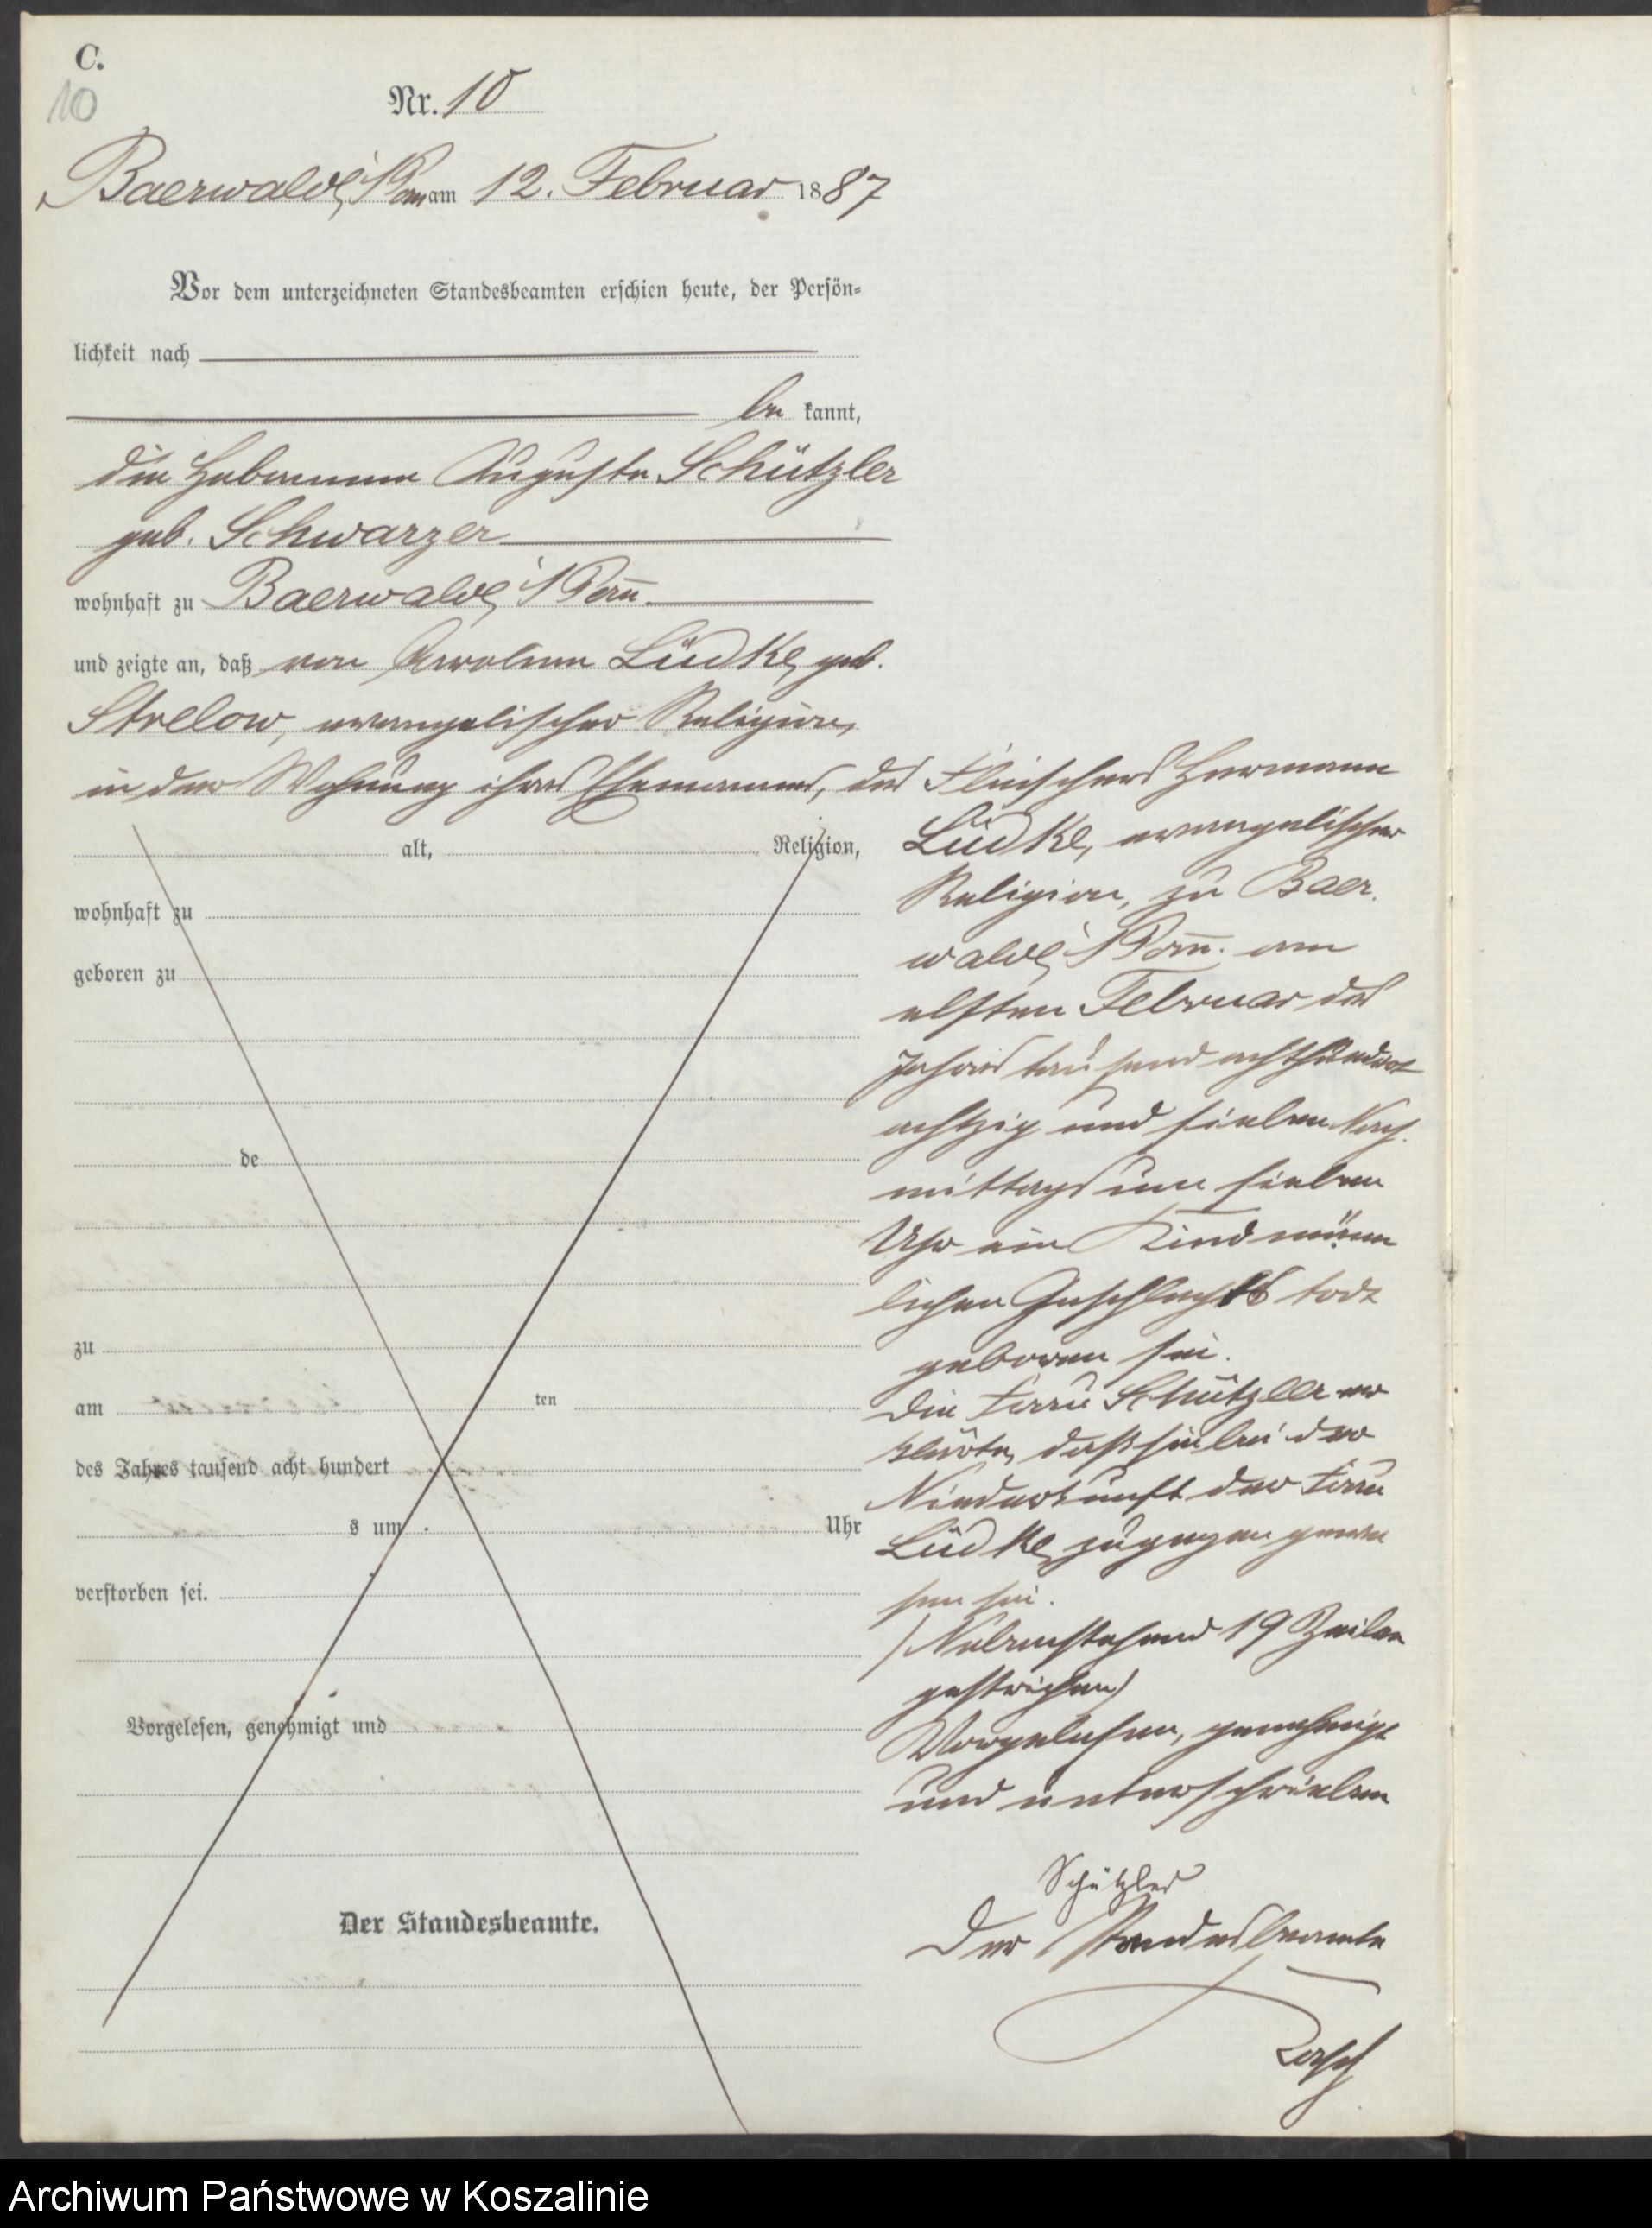 C.
10
Nr. 10
Baerwalde i/Pom am 12. Februar 1887
Vor dem unterzeichneten Standesbeamten erschien heute, der Persön-
lichkeit nach
be kannt,
die Hebamme Auguste Schützler
geb. Schwarzer
wohnhaft zu Baerwalde i/Pom.
und zeigte an, daß von Karoline Lüdke, geb.
Strelow, evangelischer Religion,
in der Wohnung ihres Ehemannes, des Fleischers Hermann
Lüdke, evangelischer
Religion, zu Baer-
walde i/Pom. am
elften Februar des
Jahres tausend achthundert
achtzig und sieben Nach-
mittags um sieben
Uhr ein Kind männ
lichen Geschlechts todt
geboren sei.
Die Frau Schützler er
klärte, daß sie bei der
Niederkunft der Frau
Lüdke zugegen gewe
sen sei.
(Nebenstehend 19 Zeilen
gestrichen)
Vorgelesen, genehmigt
und unterschrieben
Schützler
Der Standesbeamte
alt, Religion,
wohnhaft zu
geboren zu
de
zu
am ten
des Jahres tausend acht hundert
s um Uhr
verstorben sei.
Vorgelesen, genehmigt und
Der Standesbeamte.
Archiwum Państwowe w Koszalinie